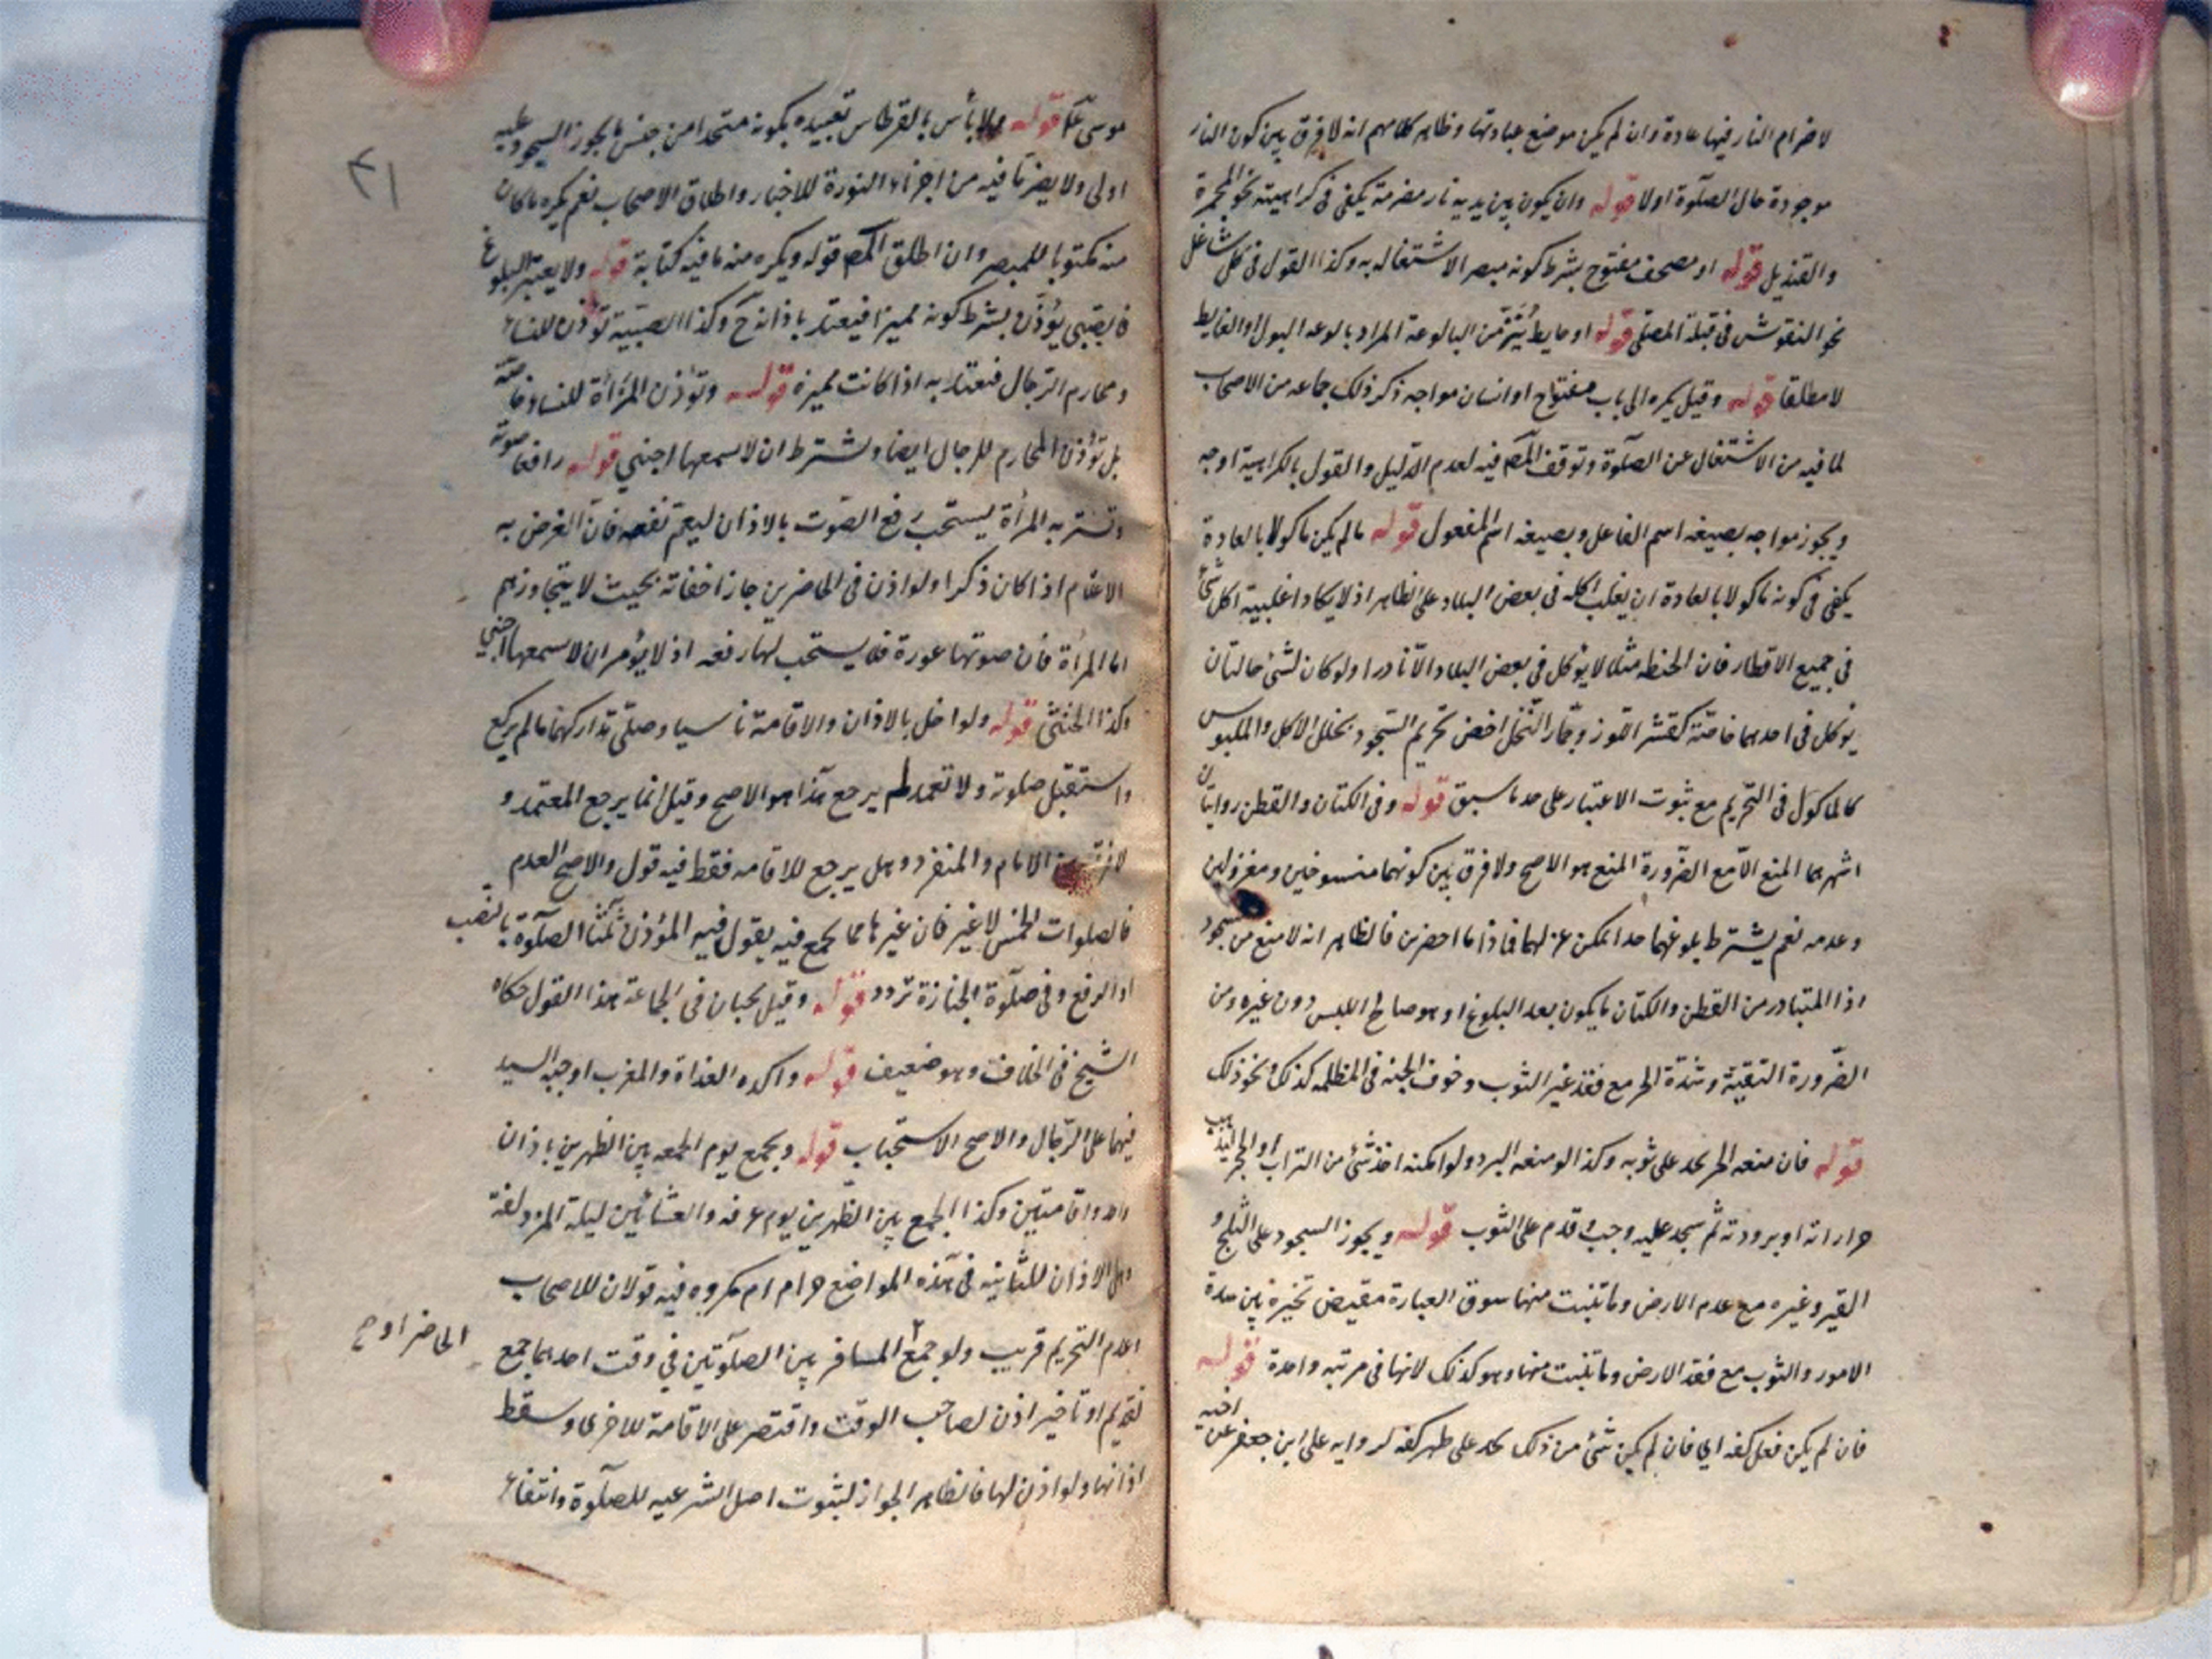 لاضرام النار فيها عادة وان لم يكن موضع عبادتها وظاهر كلامهم انه لا فرق بين كون النار
موجودة حال الصلوة اولا قوله وان يكون بين يديه نار مضرمة يكفى فى كراهيته نحو المجمرة
والقنديل قوله او مصحف مفتوح بشرط كونه مبصر الاشتغاله به وكذا القول فى كل شاغل
نحو النقوش فى قبلة المصلى قوله او حايط ينز من البالوعة المراد بالوعه البول او الغايط
لا مطلقا قوله وقيل يكره الى باب مفتوح او انسان مواجه ذكر ذلك جماعه من الاصحاب
لما فيه من الاشتغال عن الصلوة وتوقف المص فيه لعدم الدليل والقول بالكراهية اوجه
ويجوز مواجه بصيغه اسم الفاعل وبصيغه اسم المفعول قوله ما لم يكن ماكولا بالعادة
يكفى فى كونه ماكولا بالعادة ان يغلب اكله فى بعض البلاد على الظاهر اذ لا يكاد اغلبية اكل شئ
فى جميع الاقطار فان الحنطه مثلا لا يؤكل فى بعض البلاد الا نادرا ولو كان لشئ حالتان
يؤكل فى احدهما خاصة كقشر اللوز وجمار النخل اختص تحريم السجود بحال الاكل والملبوس
كالماكول فى التحريم مع ثبوت الاعتبار على حد ما سبق قوله وفى الكتان والقطن روايتان
اشهرهما المنع الا مع الضرورة المنع هو الاصح ولا فرق بين كونهما منسوجين ومغزولين
وعدمه نعم يشترط بلوغهما حدا يمكن غزلهما فاذا ما احضرين فالظاهر انه لا منع من سجود
اذا المتبادر من القطن والكتان ما يكون بعد البلوغ او هو صالح اللبس دون غيره ومن
الضرورة التقية وشدة الحر مع فقد غير الثوب وخوف الجنه فى المظلمه كذلك نحو ذلك
قوله فان منعه الحر سجد على ثوبه وكذا لو منعه البرد ولو امكنه اخذ شئ من التراب او الحجر
حرارته او برودته ثم سجد عليه وجب وقدم على الثوب قوله ويجوز السجود على الثلج و
القير وغيره مع عدم الارض وما تنبت منها سوق العبارة مقيض تخيره بين هذه
الامور والثوب مع فقد الارض وما تنبت منها وهو كذلك لانها فى مرتبه واحدة قوله
فان لم يكن فعلى كفه اى فان لم يكن شئ من ذلك سجد على ظهر كفه لروايه على ابن جعفر عن اخيه
موسى ع قوله ولا بأس بالقرطاس تقييده بكونه متخدا من جنس ما يجوز السجود عليه
اولى ولا يضر ما فيه من اجزاء النورة للاخبار واطلاق الاصحاب نعم يكره ما كان
منه مكتوبا للمبصر وان اطلق المص قوله ويكره منه ما فيه كتابة قوله ولا يعتبر البلوغ
فالصبى يؤذن بشرط كونه مميزا فيعتد باذانه ح وكذا الصبية تؤذن للنساء
ومحارم الرجال فيعتد به اذا كانت مميزة قوله وتؤذن المرأة للنساء خاصة
بل تؤذن المحارم للرجال ايضا ويشترط ان لا يسمعها اجنبى قوله رافعا صوته
وتستر به المرأة يستحب رفع الصوت بالاذان ليعم نفعه فان الغرض به
الاعلام اذا كان ذكرا ولو اذن فى الحاضرين جاز اخفاته بحيث لا يتجاوزهم
اما المرأة فان صوتها عورة فلا يستحب لها رفعه اذ لا يؤمر ان لا يسمعها اجنبى
وكذا الخنثى قوله ولو اخل بالاذان والاقامة ناسيا وصلى تداركهما ما لم يركع
واستقبل صلوته ولا تعمد لم يرجع هذا هو الاصح وقيل انما يرجع المعتمد و
لا فرق بين الامام والمنفرد وهل يرجع للاقامه فقط فيه قول والاصح العدم
فالصلوات الخمس لا غير فان غيرها مما يجمع فيه يقول فيه المؤذن ثلثا الصلوة بالنصب
او الرفع وفى صلوة الجنازة تردد قوله وقيل يجبان فى الجماعة هذا القول حكاه
الشيخ فى الخلاف وهو ضعيف قوله واكده الغداة والمغرب اوجبه السيد
فيهما على الرجال والاصح الاستحباب قوله ويجمع يوم الجمعه بين الظهرين باذان
واحد واقامتين وكذا الجمع بين الظهرين يوم عرفه والعشائين ليلة المزدلفة
وهل الاذان للثانيه فى هذه المواضع حرام ام مكروه فيه قولان للاصحاب
اعدم التحريم قريب ولو جمع المسافر بين الصلوتين فى وقت احدهما جمع
الحاضر او ح
تقديم او تاخير اذن لصاحب الوقت واقتصر على الاقامة للاخرى وسقط
اذانها ولو اذن لها فالظاهر الجواز لثبوت اصل الشرعيه للصلوة وانتفاء